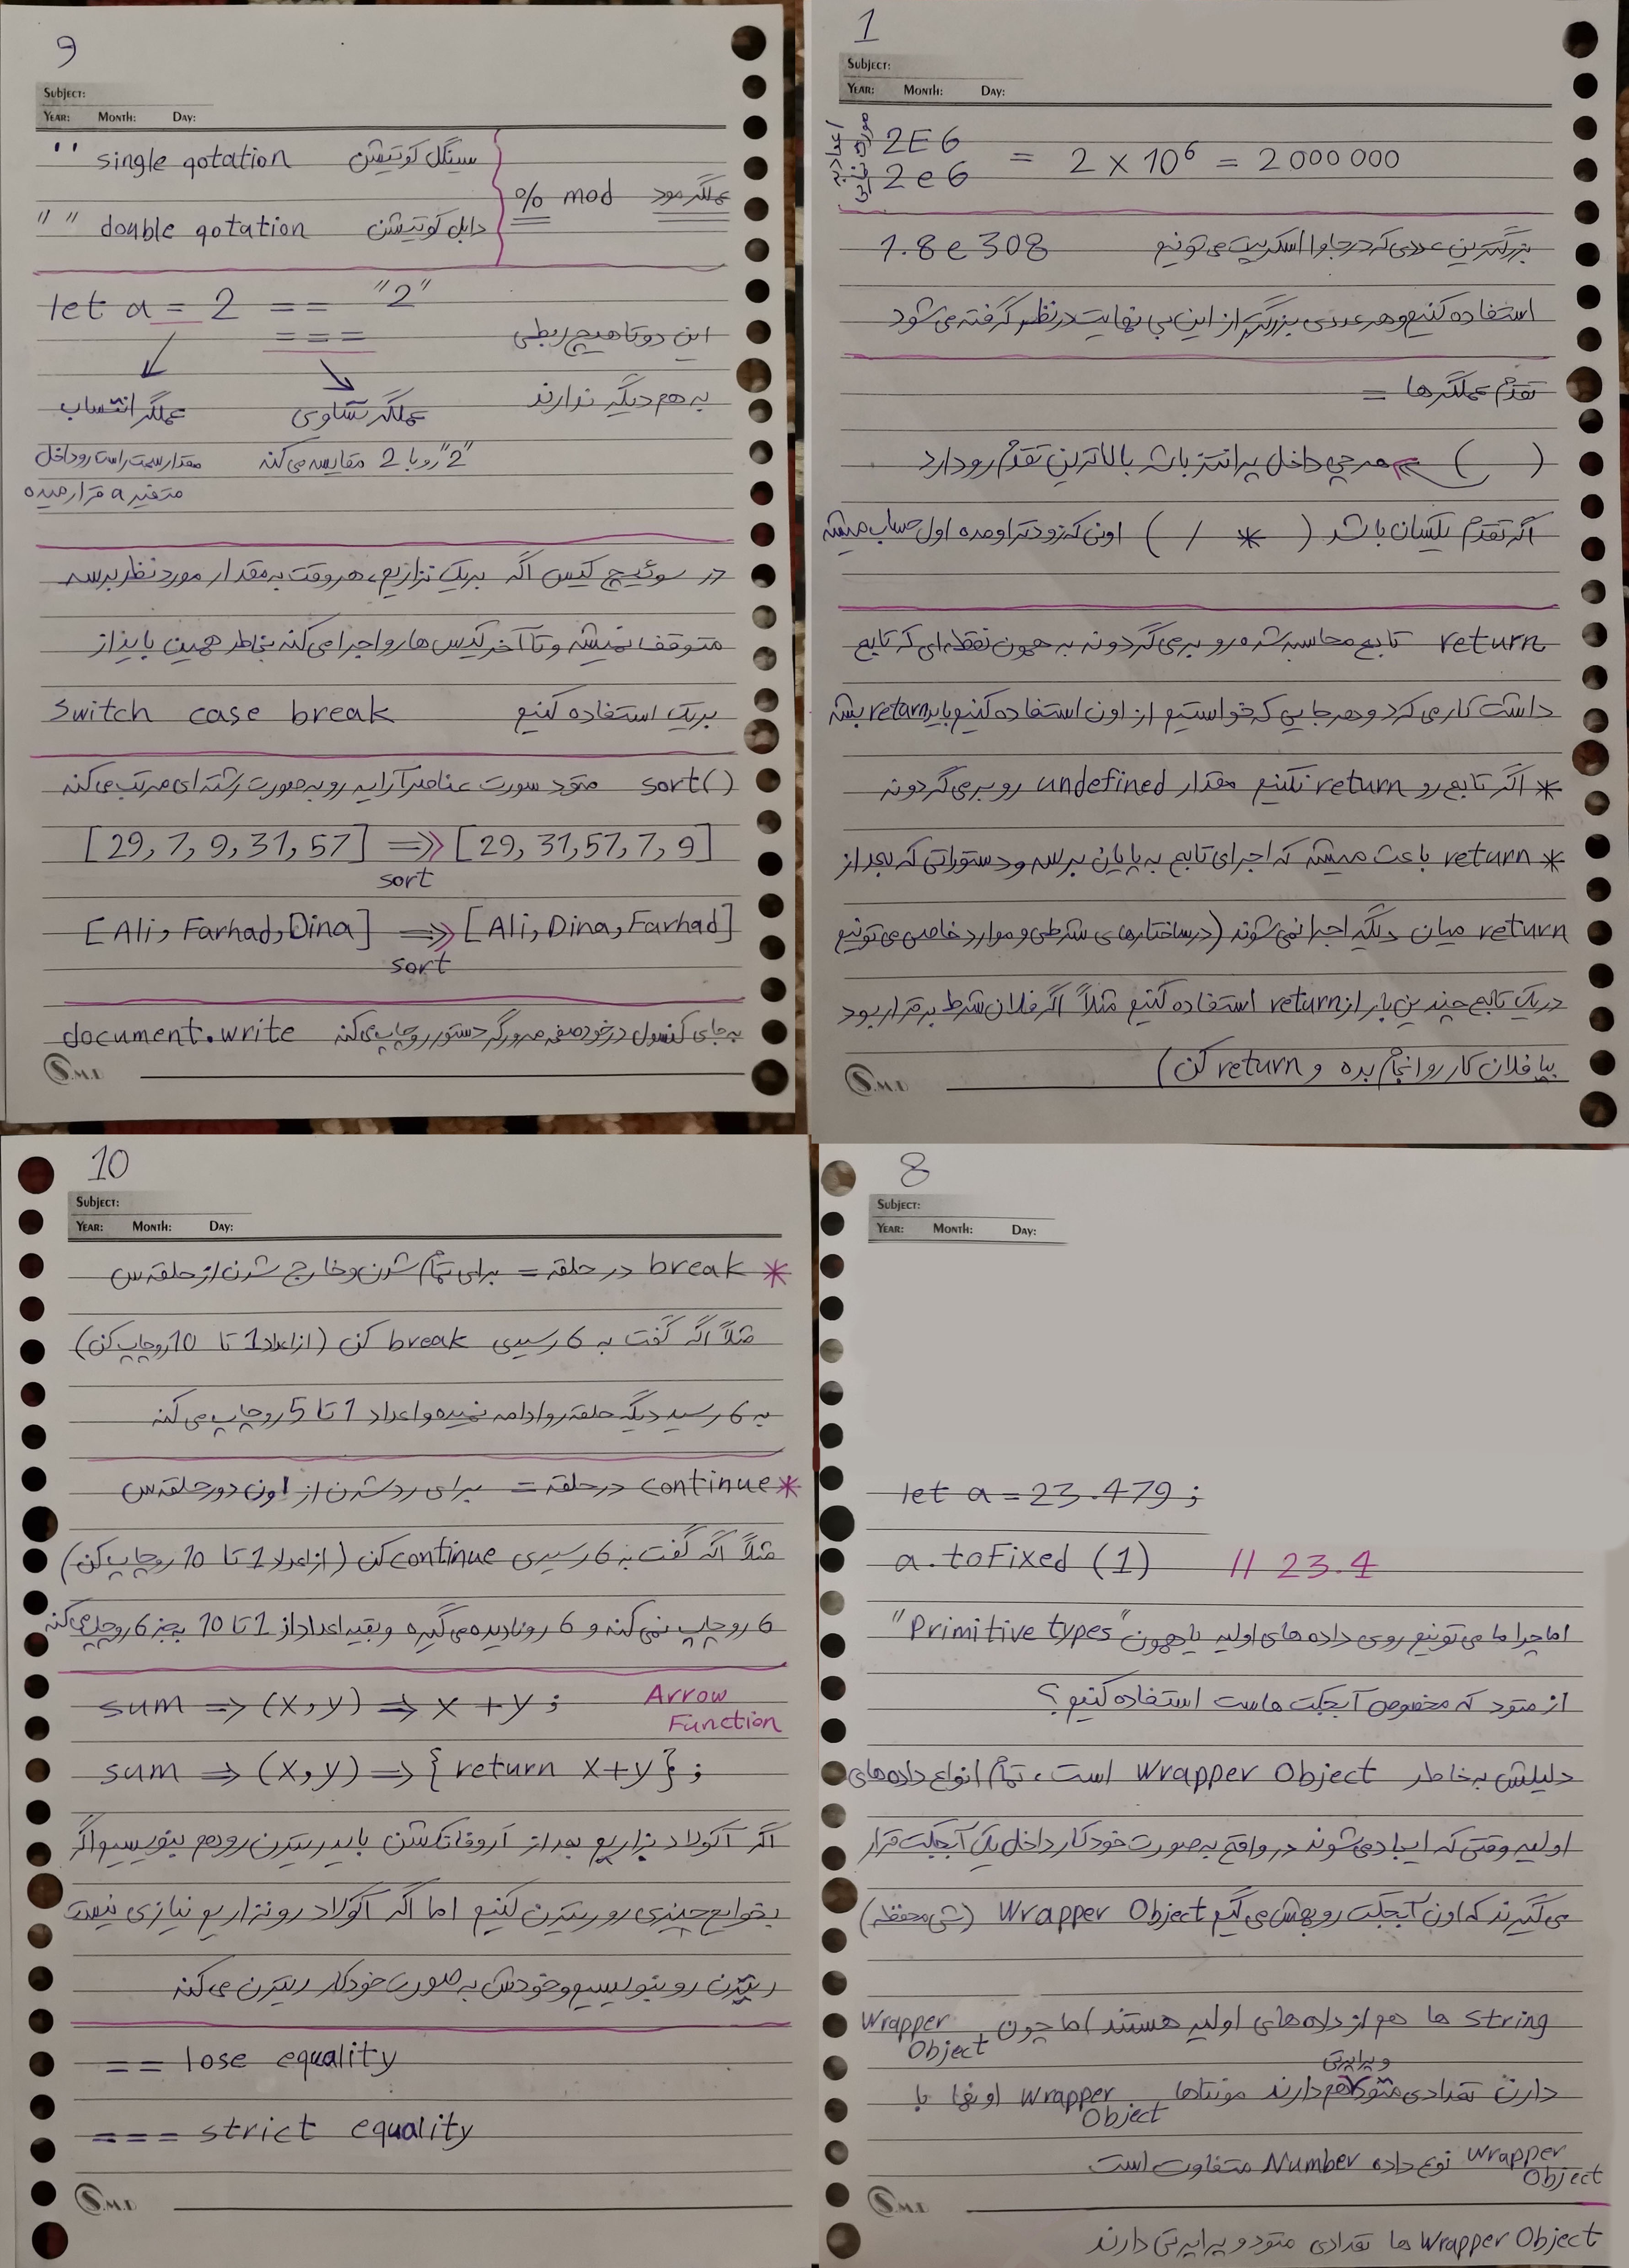 9
Subject:
Year: Month: Day:
' ' single qotation سینگل کوتیشن
" " double qotation دابل کوتیشن
% mod عملگر مود
let a = 2 == "2"
===
این دوتا هیچ ربطی
به هم دیگر ندارند
عملگر تساوی
عملگر انتساب
"2" رو با 2 مقایسه می کنه
مقدار سمت راست رو داخل
متغیر a قرار میده
در سوئیچ کیس اگه بریک نزاریم، هر وقت به مقدار مورد نظر برسه
متوقف نمیشه و تا آخر کیس ها رو اجرا می کنه بخاطر همین باید از
بریک استفاده کنیم switch case break
sort() متود سورت عناصر آرایه رو به صورت رشته ای مرتب می کنه
[29, 7, 9, 31, 57] => [29, 31, 57, 7, 9]
sort
[Ali, Farhad, Dina] => [Ali, Dina, Farhad]
sort
document.write به جای کنسول در خود صفحه مرورگر دستور رو چاپ می کنه
S.M.D
1
Subject:
Year: Month: Day:
2E6
2e6
= 2 × 10⁶ = 2000 000
بزرگترین عددی که در جاوا اسکریپت می تونیم 1.8e308
استفاده کنیم و هر عددی بزرگتر از این بی نهایت در نظر گرفته می شود
تقدم عملگرها =
( ) => هرچی داخل پرانتز باشه بالاترین تقدم رو دارد
اگر تقدم یکسان باشد ( * / ) اونی که زودتر اومده اول حساب میشه
return تابع محاسبه شده رو برمی گردونه به همون نقطه ای که تابع
داشت کار می کرد و هر جایی که خواستیم از اون استفاده کنیم باید return بشه
* اگر تابع رو return نکنیم مقدار undefined رو برمی گردونه
* return باعث میشه که اجرای تابع به پایان برسه و دستوراتی که بعد از
return میان دیگه اجرا نمی شوند (در ساختارهای شرطی و موارد خاصی می تونیم
در یک تابع چندین بار از return استفاده کنیم مثلاً اگر فلان شرط برقرار بود
بیا فلان کار رو انجام بده و return کن)
S.M.D
10
Subject:
Year: Month: Day:
* break در حلقه = برای تمام شدن و خارج شدن از حلقه س
مثلاً اگه گفت به 6 رسیدی break کن (از اعداد 1 تا 10 رو چاپ کن)
به 6 رسید دیگه حلقه رو ادامه نمیده و اعداد 1 تا 5 رو چاپ می کنه
* continue در حلقه = برای رد شدن از اون دور حلقه س
مثلاً اگه گفت به 6 رسیدی continue کن (از اعداد 1 تا 10 رو چاپ کن)
6 رو چاپ نمی کنه و 6 رو نادیده می گیره و بقیه اعداد از 1 تا 10 به جز 6 رو چاپ می کنه
sum => (x,y) => x + y ; Arrow
Function
sum => (x,y) => {return x+y} ;
اگر آکولاد بزاریم بعد از اَروفانکشن باید ریترن رو هم بنویسیم اگر
بخوایم چیزی رو ریترن کنیم اما اگر آکولاد رو نزاریم نیازی نیست
ریترن رو بنویسیم و خودش به صورت خودکار ریترن می کنه
== lose equality
=== strict equality
S.M.D
8
Subject:
Year: Month: Day:
let a = 23.479 ;
a.toFixed (1) // 23.4
اما چرا ما می تونیم روی داده های اولیه یا همون "Primitive types"
از متود که مخصوص آبجکت هاست استفاده کنیم؟
دلیلش به خاطر Wrapper Object است، تمام انواع داده های
اولیه وقتی که ایجاد می شوند در واقع به صورت خودکار داخل یک آبجکت قرار
می گیرند که اون آبجکت رو بهش می گیم Wrapper Object (شی محفظه)
string ها هم از داده های اولیه هستند اما چون Wrapper Object
دارن تعدادی متود و پراپرتی هم دارند منتها Wrapper Object اونها با
Wrapper Object نوع داده Number متفاوت است
Wrapper Object ها تعدادی متود و پراپرتی دارند